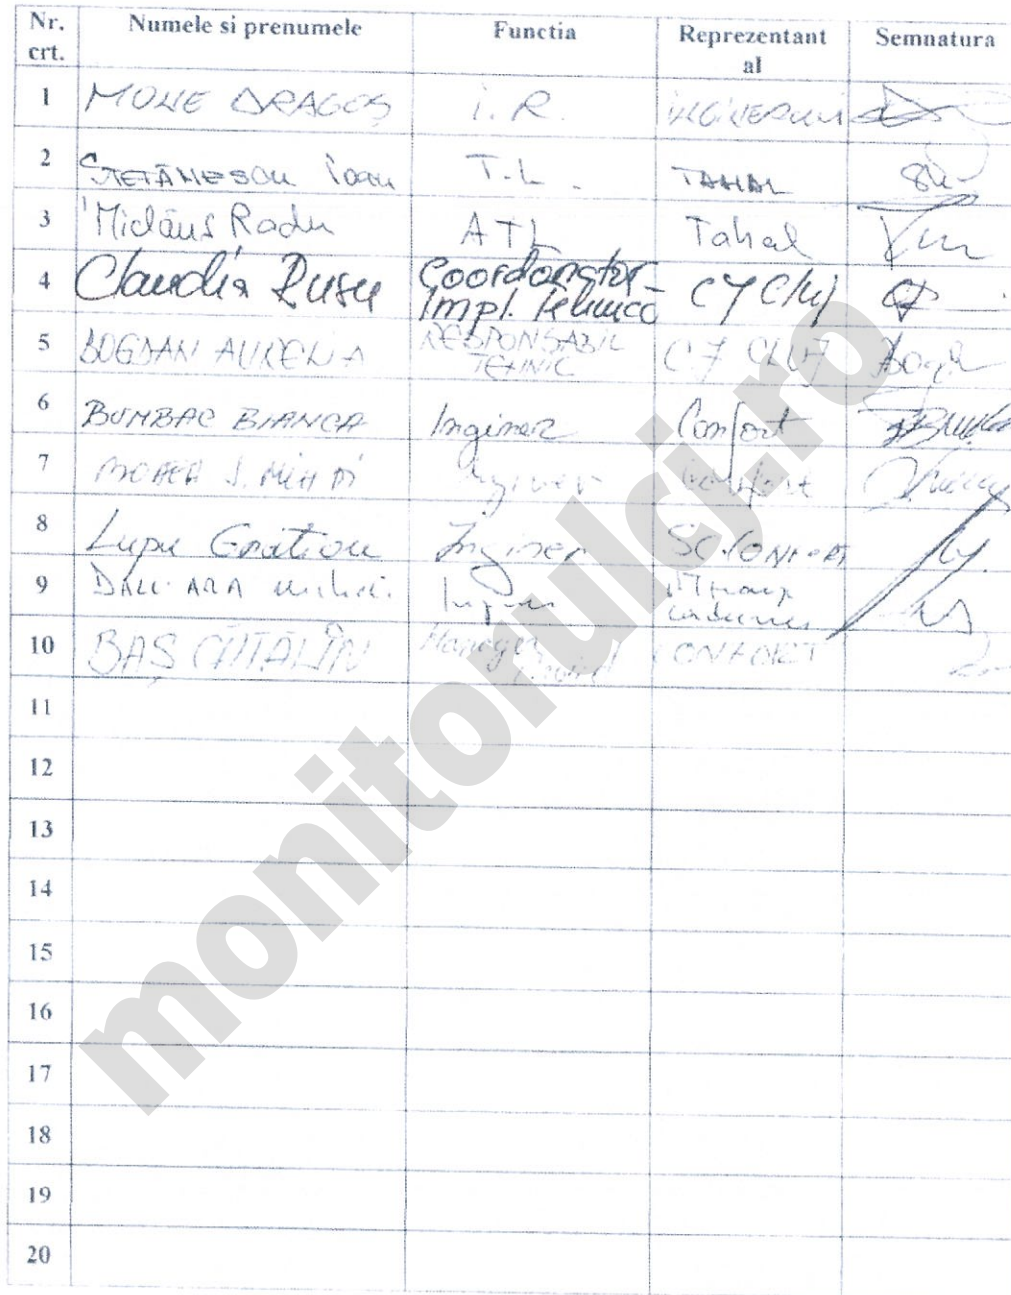 Nr. crt. Numele si prenumele Functia Reprezentant al Semnatura
1 MONE DRAGOȘ I.R. INGINERULUI
2 ȘTEFĂNESCU Ioan T.L. TAHAL
3 Miclăuș Radu ATL Tahal
4 Claudia Rusu Coordonator Impl. Tehnico CJ Cluj
5 BOGDAN AURELIA RESPONSABIL TEHNIC CJ CLUJ
6 BUMBAC BIANCA Inginer Confort
7 Inginer Confort
8 Lupu Grațian Inginer SC CONFORT
9 DALL'ARA
10 BAȘ CĂTĂLIN Manager CONFORT
11
12
13
14
15
16
17
18
19
20
monitorulcj.ro